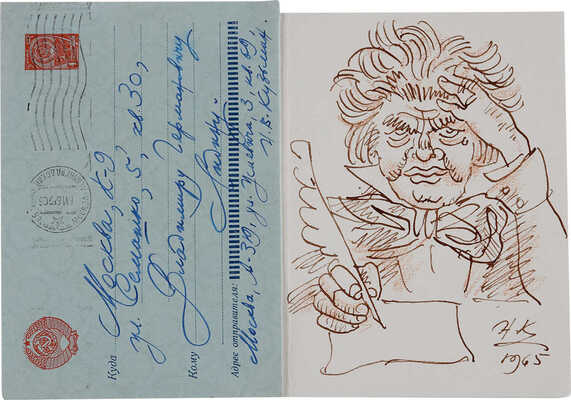 Куда Москва, К-9
ул. Семашко, 5, кв. 30,
Кому Владимиру Германовичу
Лидину.
Адрес отправителя:
Москва, А-319, ул. Усиевича, 3, кв. 69,
Н.В. Кузьмин
НК
1965